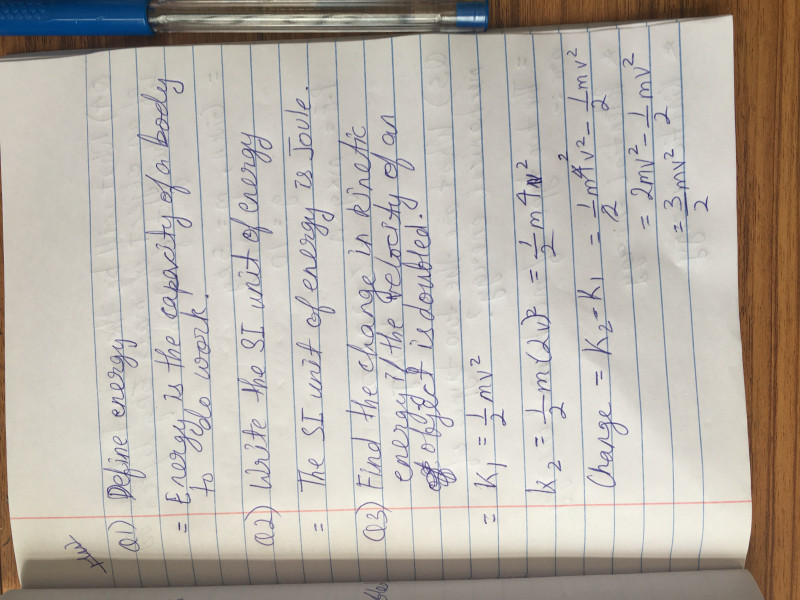 Ans
Q1) Define energy
= Energy is the capacity of a body
to do work.
Q2) Write the SI unit of energy
= The SI unit of energy is Joule.
Q3) Find the change in kinetic
energy if the velocity of an
object is doubled.
= K₁ = 1/2 mv²
K₂ = 1/2 m(2v)² = 1/2 m4v²
Change = K₂ - K₁ = 1/2 m4v² - 1/2 mv²
= 2mv² - 1/2 mv²
= 3/2 mv²